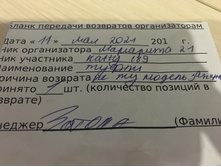 Бланк передачи возвратов организаторам
Дата «11» мая 2021 201 г.
Ник организатора Маргарита 21
Ник участника 189
Наименование туфли
Причина возврата не ту модель
Принято 1 шт. (количество позиций в
возврате)
Менеджер (Фамили